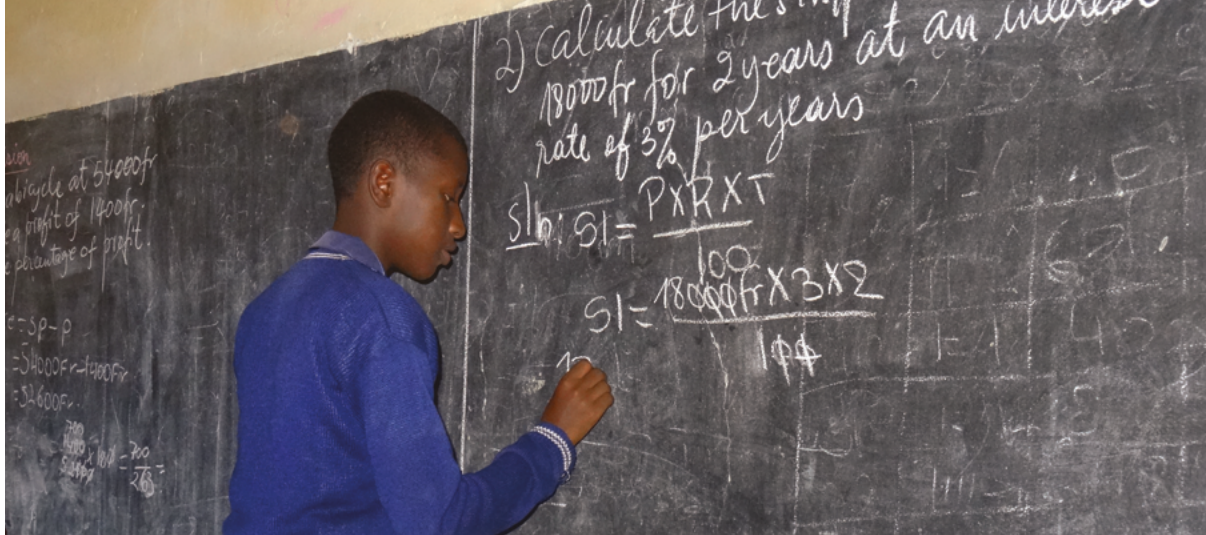 sion
abicycle at 54000fr
a profit of 1400fr.
percentage of profit.
= SP - P
= 54000Fr - 1400Fr
= 52600Fr.
700
x 100 = 700/263 =
2) Calculate the simp
18000fr for 2 years at an interest
rate of 3% per years
Sln: SI = PXRXT
100
SI = 18000fr X 3 X 2
100